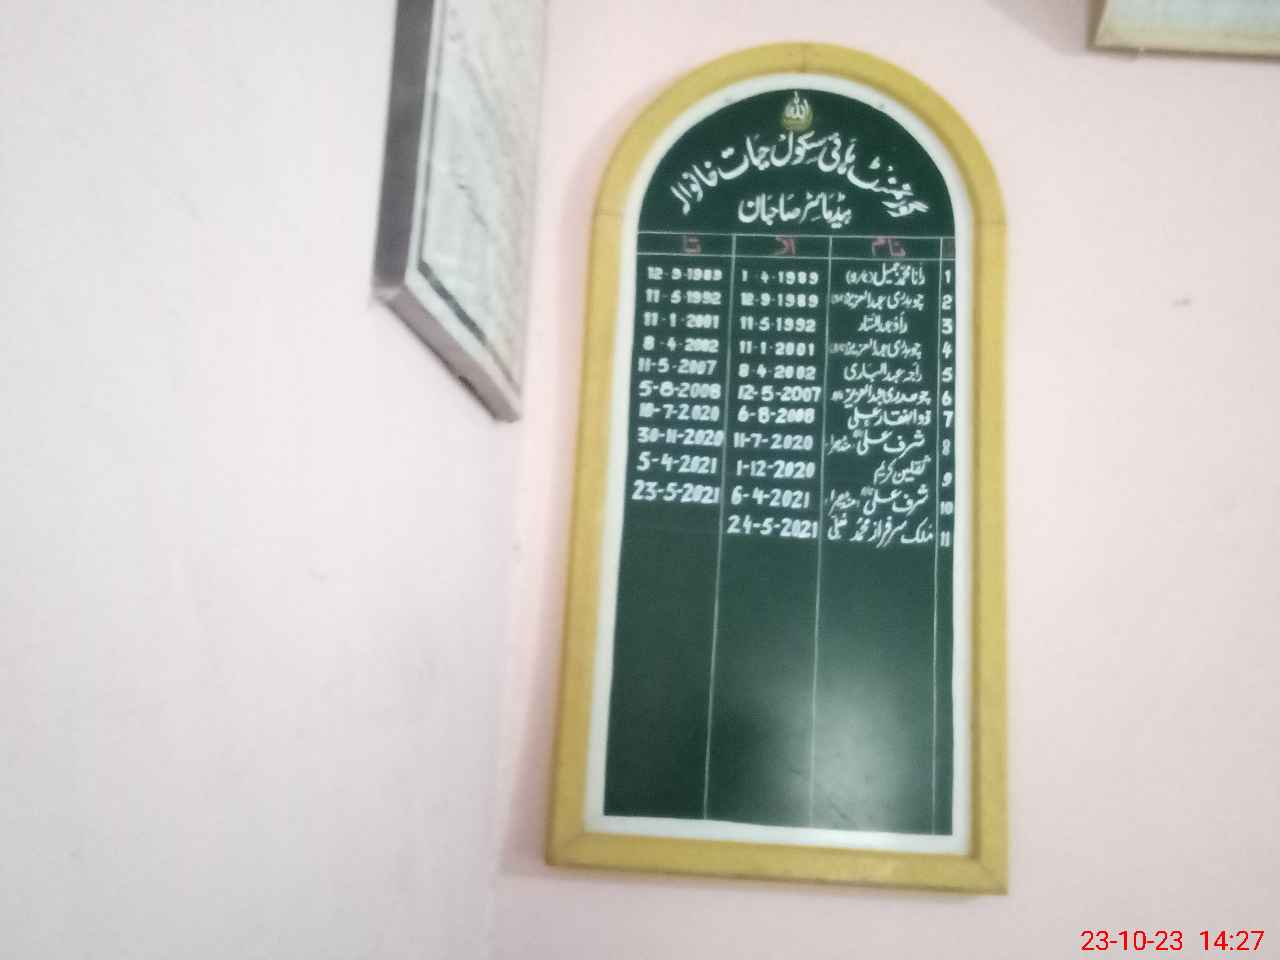 الله
گورنمنٹ ہائی سکول جہات خانوال
ہیڈماسٹر صاحبان
نام از تا
1 رانا محمد جمیل 1-4-1989 12-9-1989
2 چوہدری عبدالعزیز 12-9-1989 11-5-1992
3 راؤ عبدالستار 11-5-1992 11-1-2001
4 چوہدری عبدالعزیز 11-1-2001 8-4-2002
5 راجہ عبدالباری 8-4-2002 11-5-2007
6 چوھدری عبدالعزیز 12-5-2007 5-8-2008
7 ذوالفقار علی 6-8-2008 10-7-2020
8 شرف علی 11-7-2020 30-11-2020
9 ثقلین کریم 1-12-2020 5-4-2021
10 شرف علی 6-4-2021 23-5-2021
11 ملک سرفراز محمد 24-5-2021
23-10-23 14:27